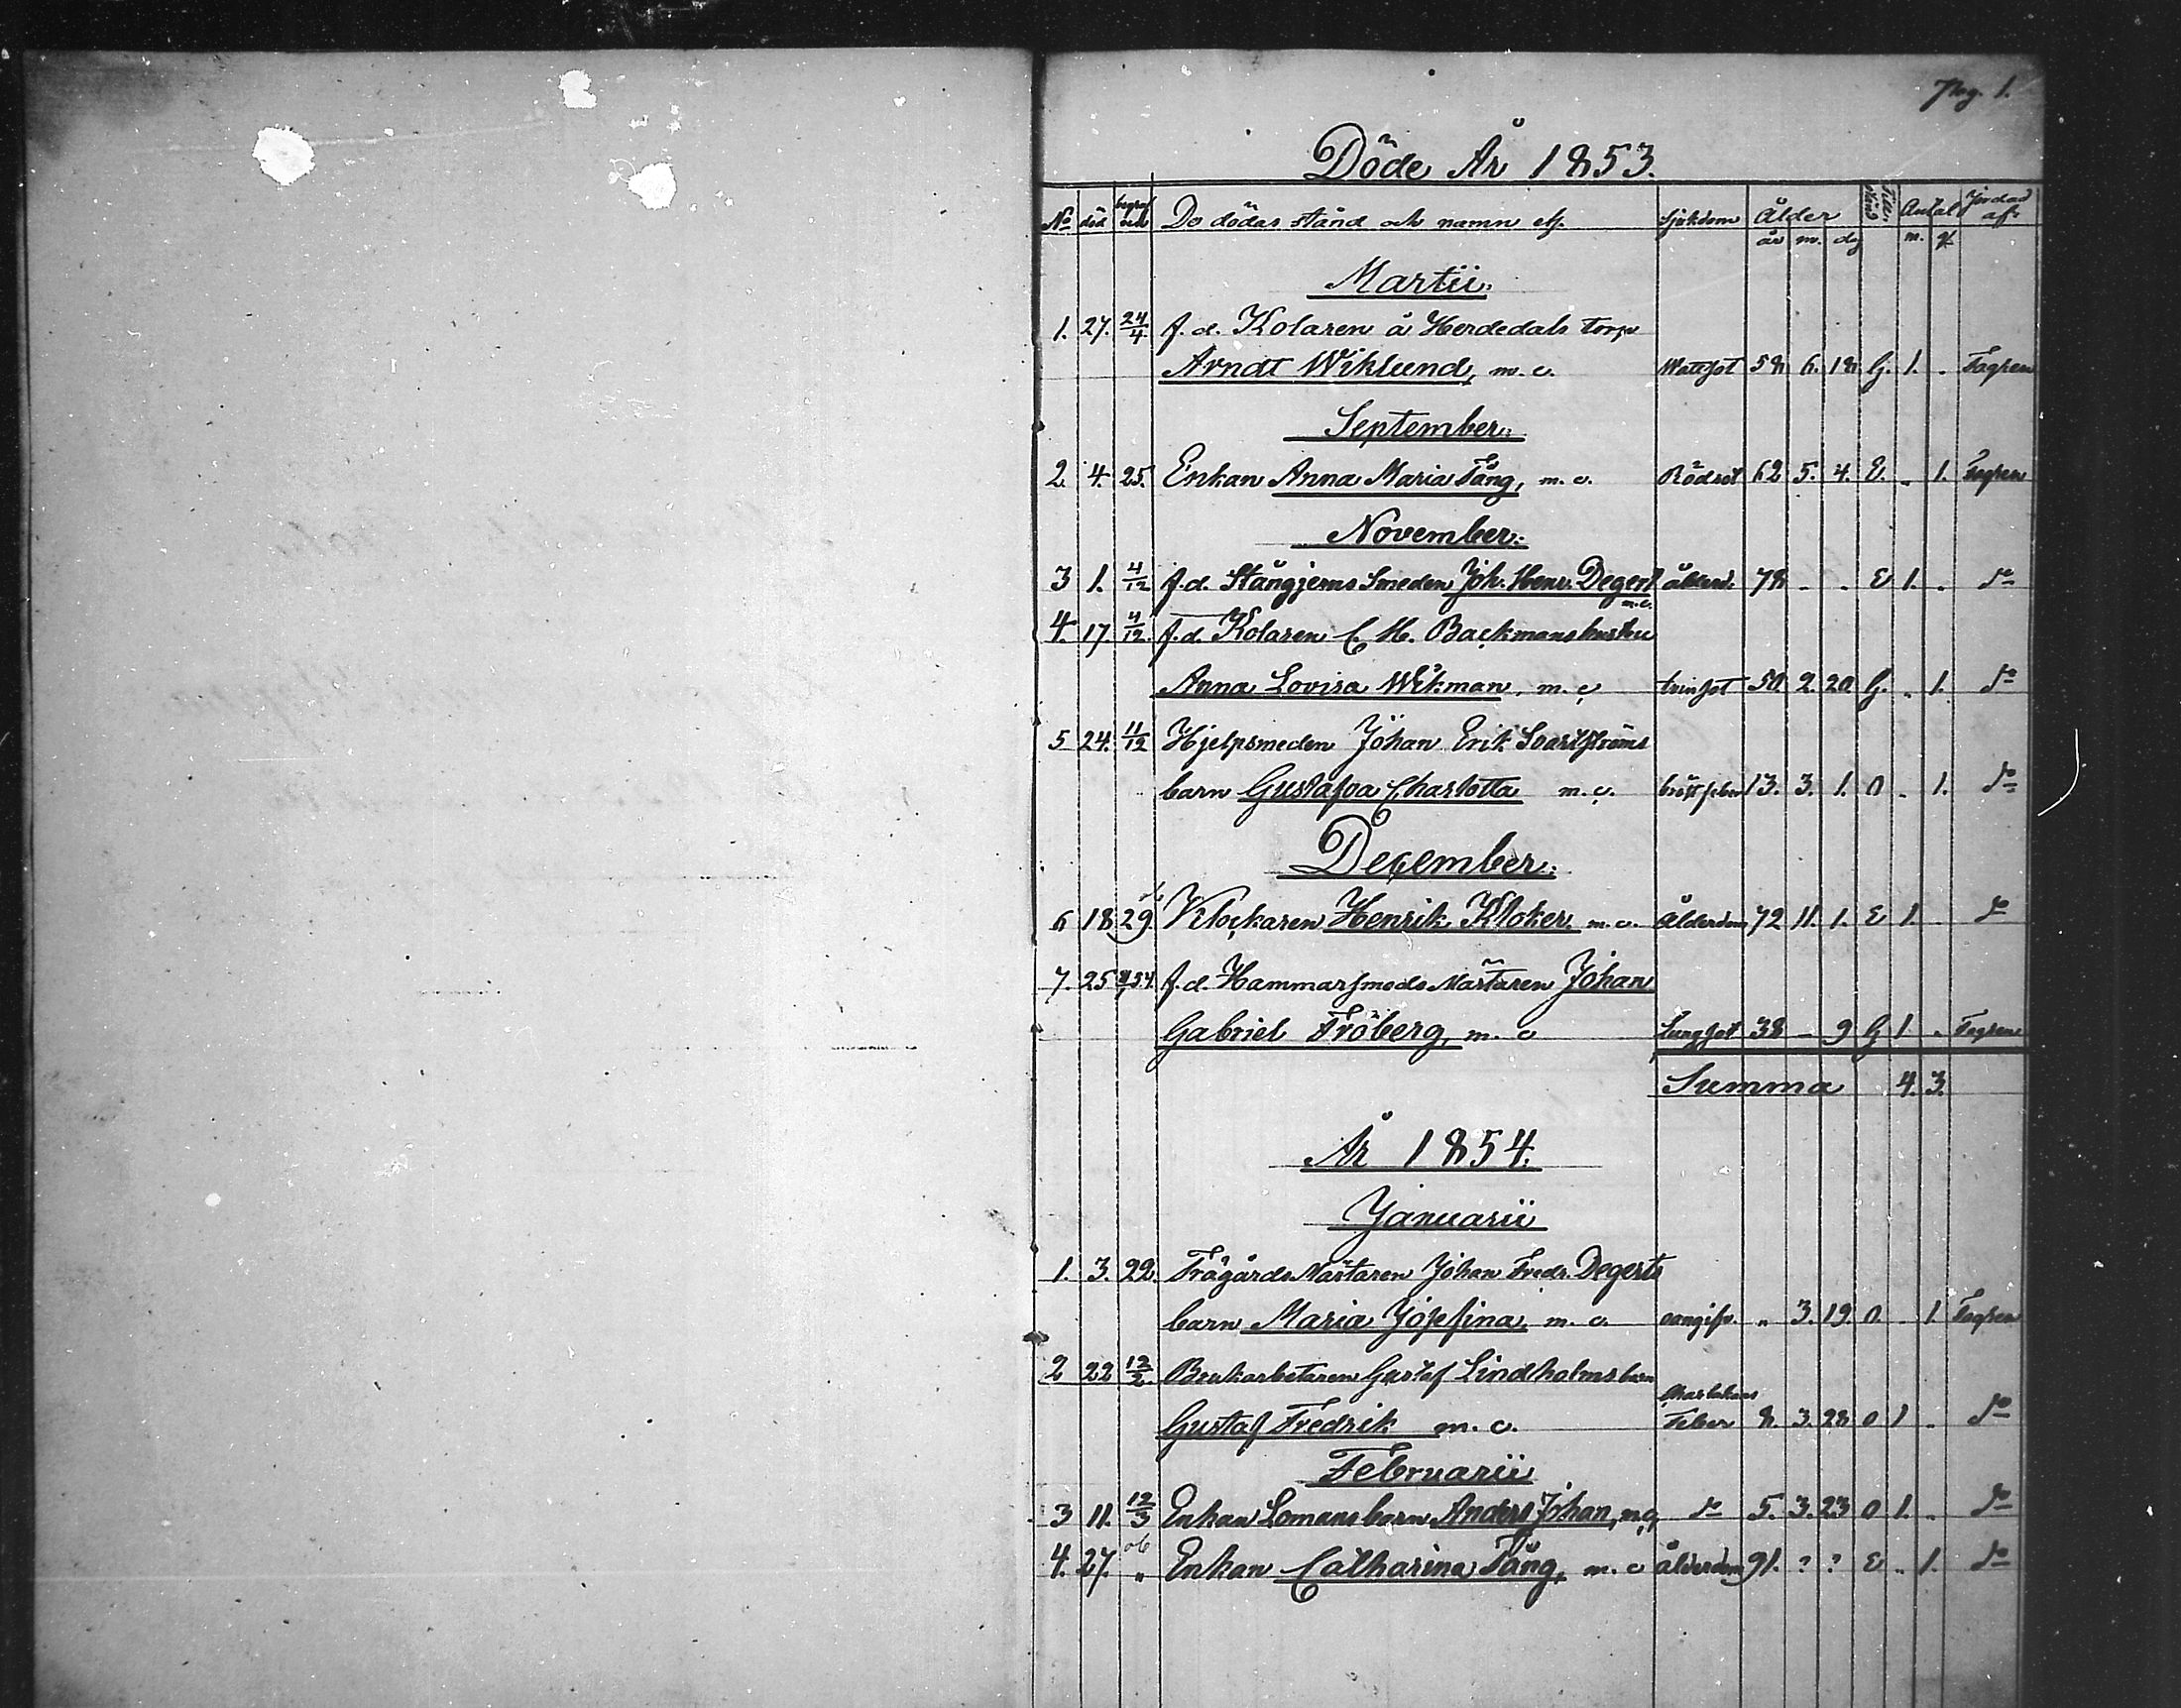 Pag. 1.
Döde År 1853.
No död begraf en De dödas stånd och namn etc. Sjukdom Ålder Antal Jordad af
år m. dg m. q.
Martii.
1. 27. 24/4 f.d. Kolaren å Herdedals torp
Arndt Wiklund, m.c. Wattsot 58 6. 18 G. 1. „ Fagren
September.
2. 4. 25. Enkan Anna Maria Tång, m.c. Rödsot 62 5. 4. E. „ 1. Fagren
November.
3 1. 4/12 f.d. Stångjerns Smeden Joh. Henr. Degert m.c. ålderd. 78 - - E 1. „ do
4. 17. 4/12. f.d. Kolaren C. H. Backmans hustru
Anna Lovisa Wikman, m.c. tvinsot 50 2. 20 G. „ 1. do
5 24. 11/12 Hjelpsmeden Johan Erik
barn Gustafva Charlotta m.c. bröstfeber 13. 3. 1. O „ 1. do
December.
6 18 29. Klockaren Henrik Kloker. m.c. Ålderdom 72 11. 1. E 1. do
7. 25 f.d. Hammarsmeds Mästaren Johan
Gabriel Fröberg, m.c Lungsot 38 - 9 G 1 „ Fagren
Summa 4. 3.
År 1854.
Januarii
1. 3. 22. Trägårds Mästaren Johan Fredr. Degerts
barn Maria Josefina, m.c. „ 3. 19. O. „ 1 Fagren
2 22 12/2. Brukarbetaren Gustaf Lindholms barn
Charlakans
Gustaf Fredrik m.c. Feber 8. 3. 28 O 1 „ do
Februarii
3 11. 12/3 Enkan Lomans barn Anders Johan, m.c, do 5. 3. 23 O 1. „ do
4. 27. „ Enkan Catharina Tång, m.c ålderdom 91. ? ? E „ 1. do